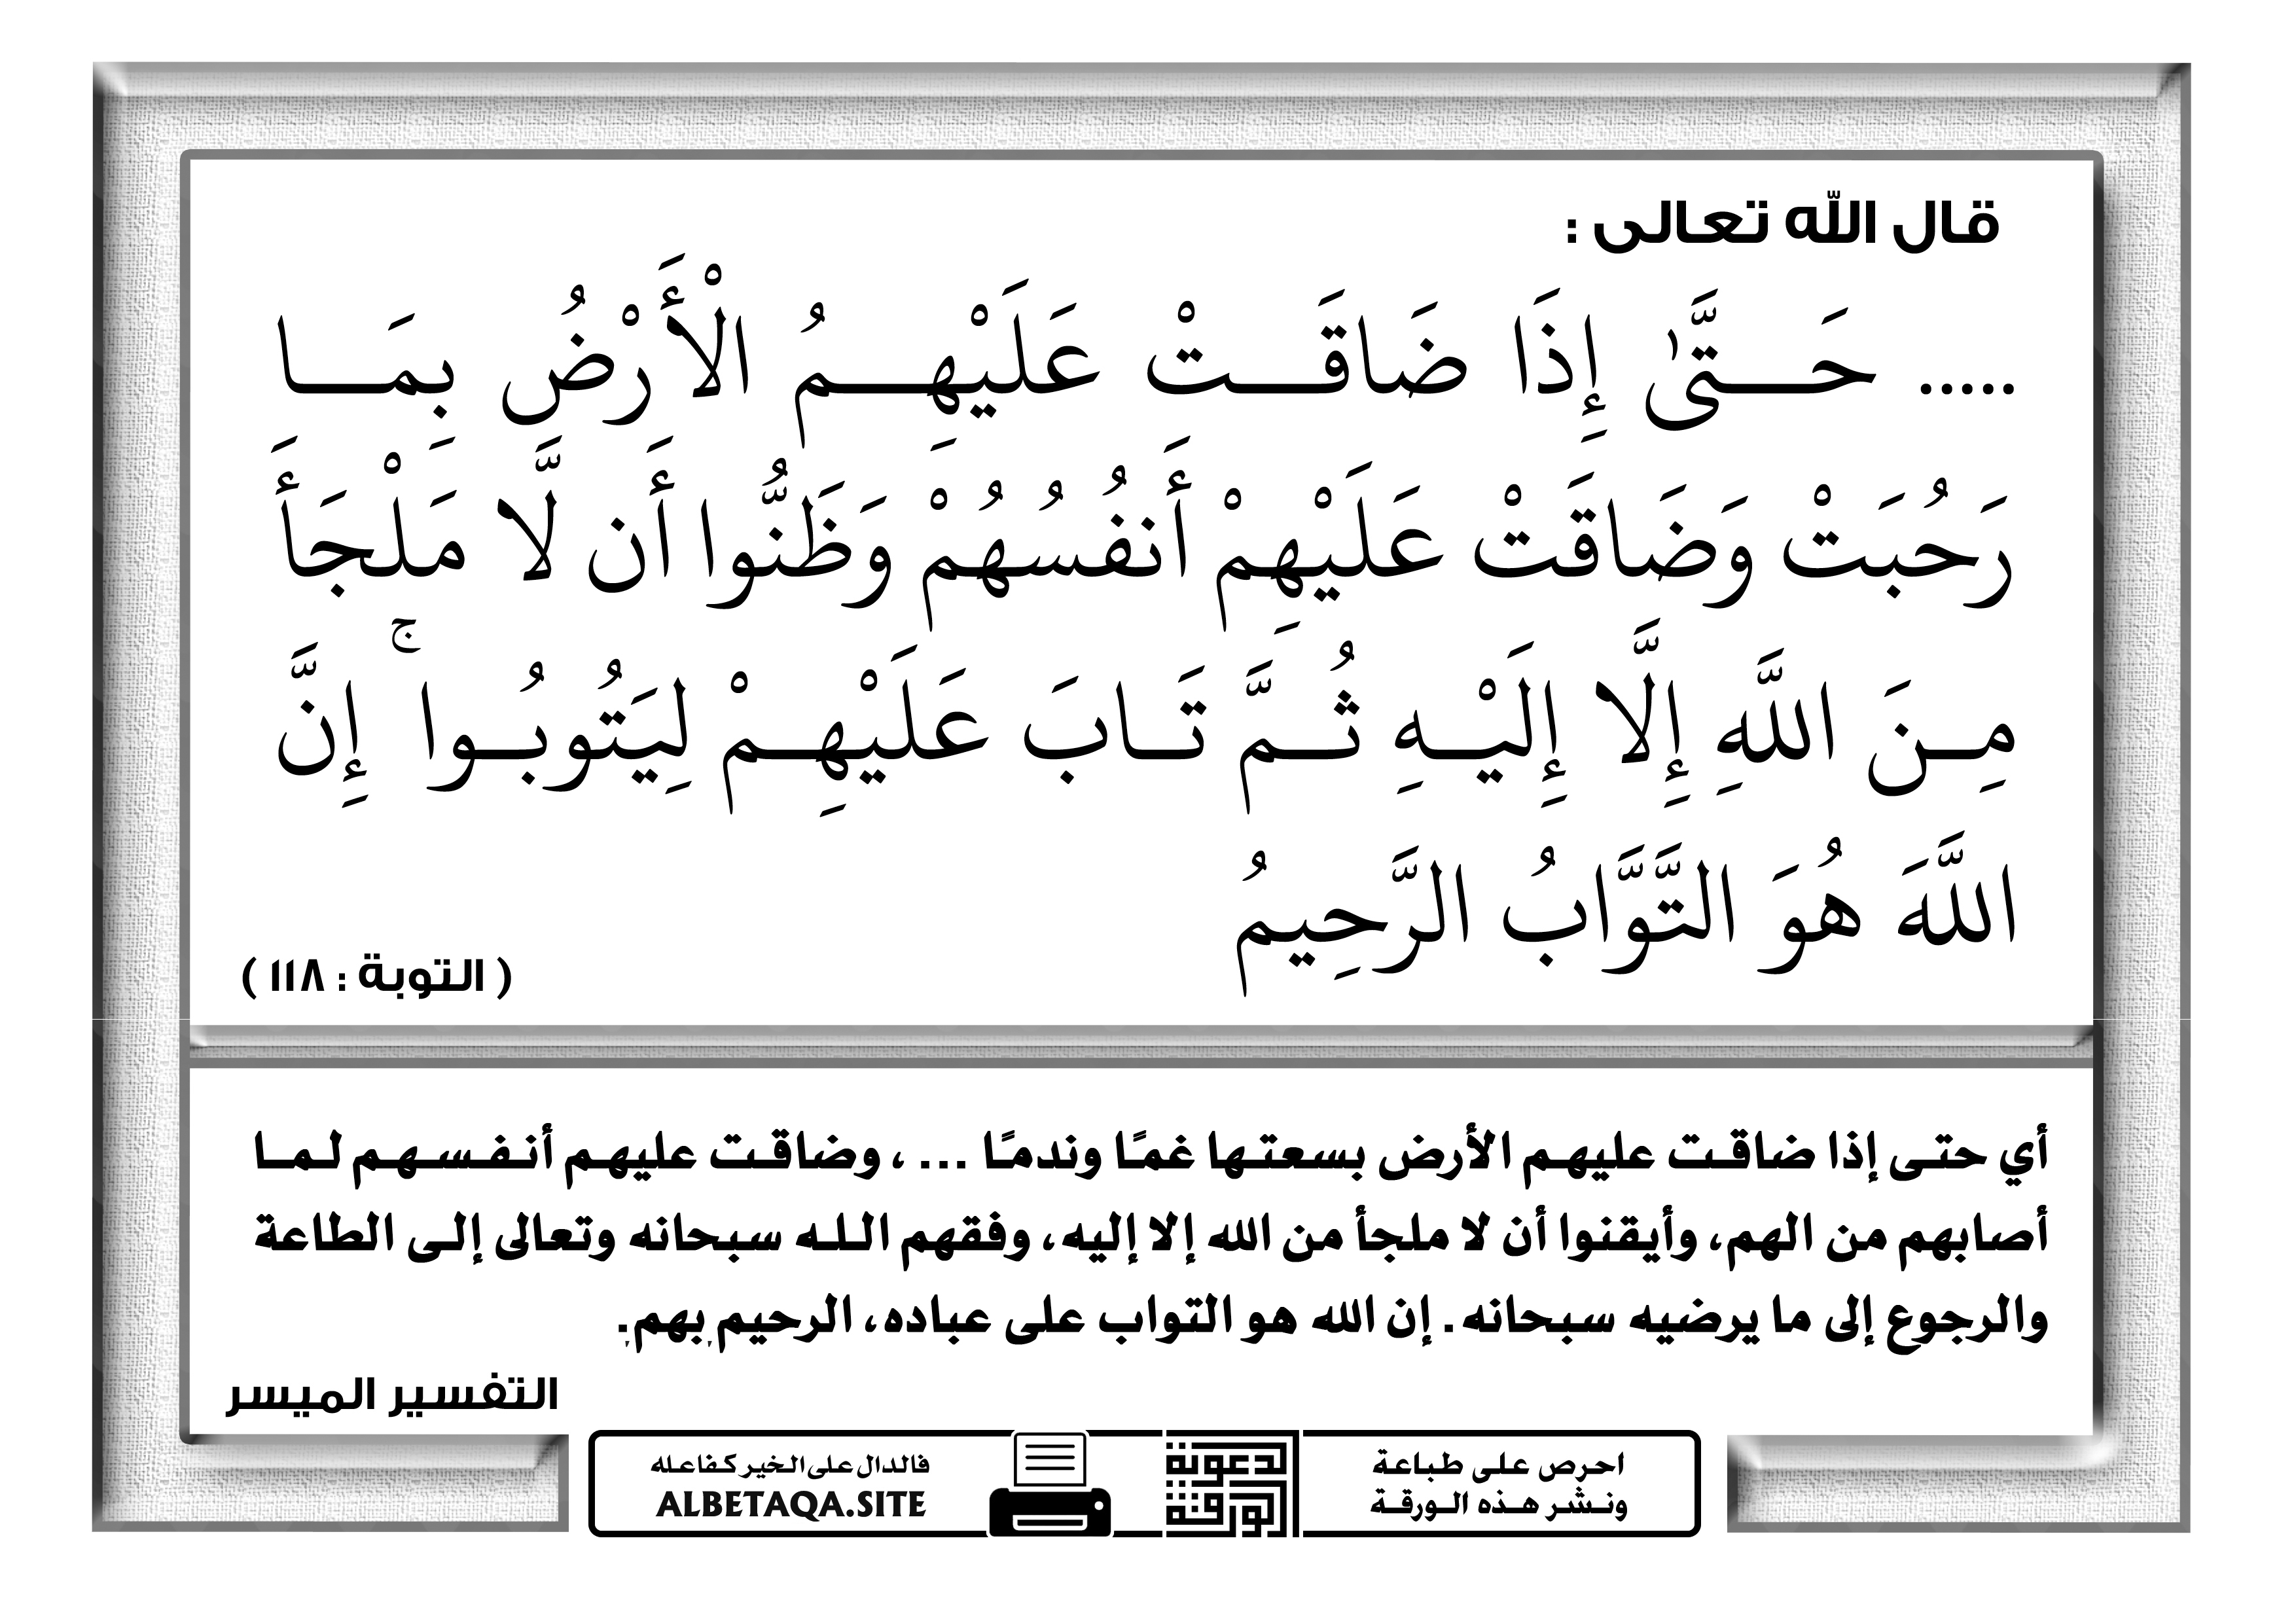 قال الله تعالى :
..... حَتَّىٰ إِذَا ضَاقَتْ عَلَيْهِمُ الْأَرْضُ بِمَا
رَحُبَتْ وَضَاقَتْ عَلَيْهِمْ أَنفُسُهُمْ وَظَنُّوا أَن لَّا مَلْجَأَ
مِنَ اللَّهِ إِلَّا إِلَيْهِ ثُمَّ تَابَ عَلَيْهِمْ لِيَتُوبُوا ۚ إِنَّ
اللَّهَ هُوَ التَّوَّابُ الرَّحِيمُ
( التوبة : ١١٨ )
أي حتى إذا ضاقت عليهم الأرض بسعتها غمًا وندمًا ... ، وضاقت عليهم أنفسهم لما
أصابهم من الهم، وأيقنوا أن لا ملجأ من الله إلا إليه، وفقهم الله سبحانه وتعالى إلى الطاعة
والرجوع إلى ما يرضيه سبحانه. إن الله هو التواب على عباده، الرحيم بهم.
التفسير الميسر
احرص على طباعة
ونشر هذه الورقة
الدعوية
الورقة
فالدال على الخير كفاعله
ALBETAQA.SITE